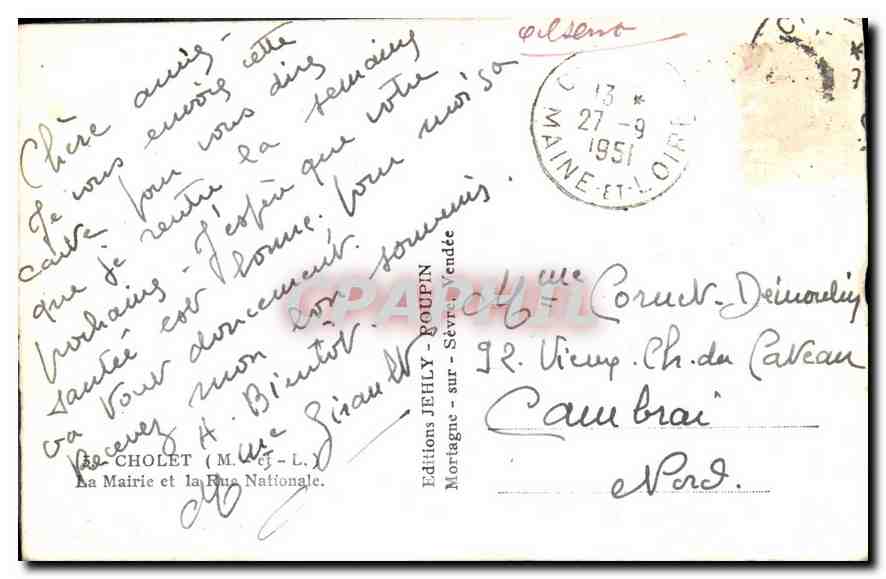 Chère amie -
Je vous envoie cette
carte pour vous dire
que je rentre la semaine
prochaine - J'espère que votre
santée est bonne, pour moi sa
va tout doucement.
Recevez mon bon souvenir.
A. Bientôt.
Mme Girault
39 - CHOLET (M. - et - L.)
La Mairie et la Rue Nationale.
Editions JEHLY - POUPIN
Mortagne - sur - Sèvre, Vendée
13 *
27 - 9
1951
MAINE-ET-LOIRE
Mme Cornet-Demoulin
92. Vieux. Ch. du Cateau
Cambrai
Nord.
CPAPHIL